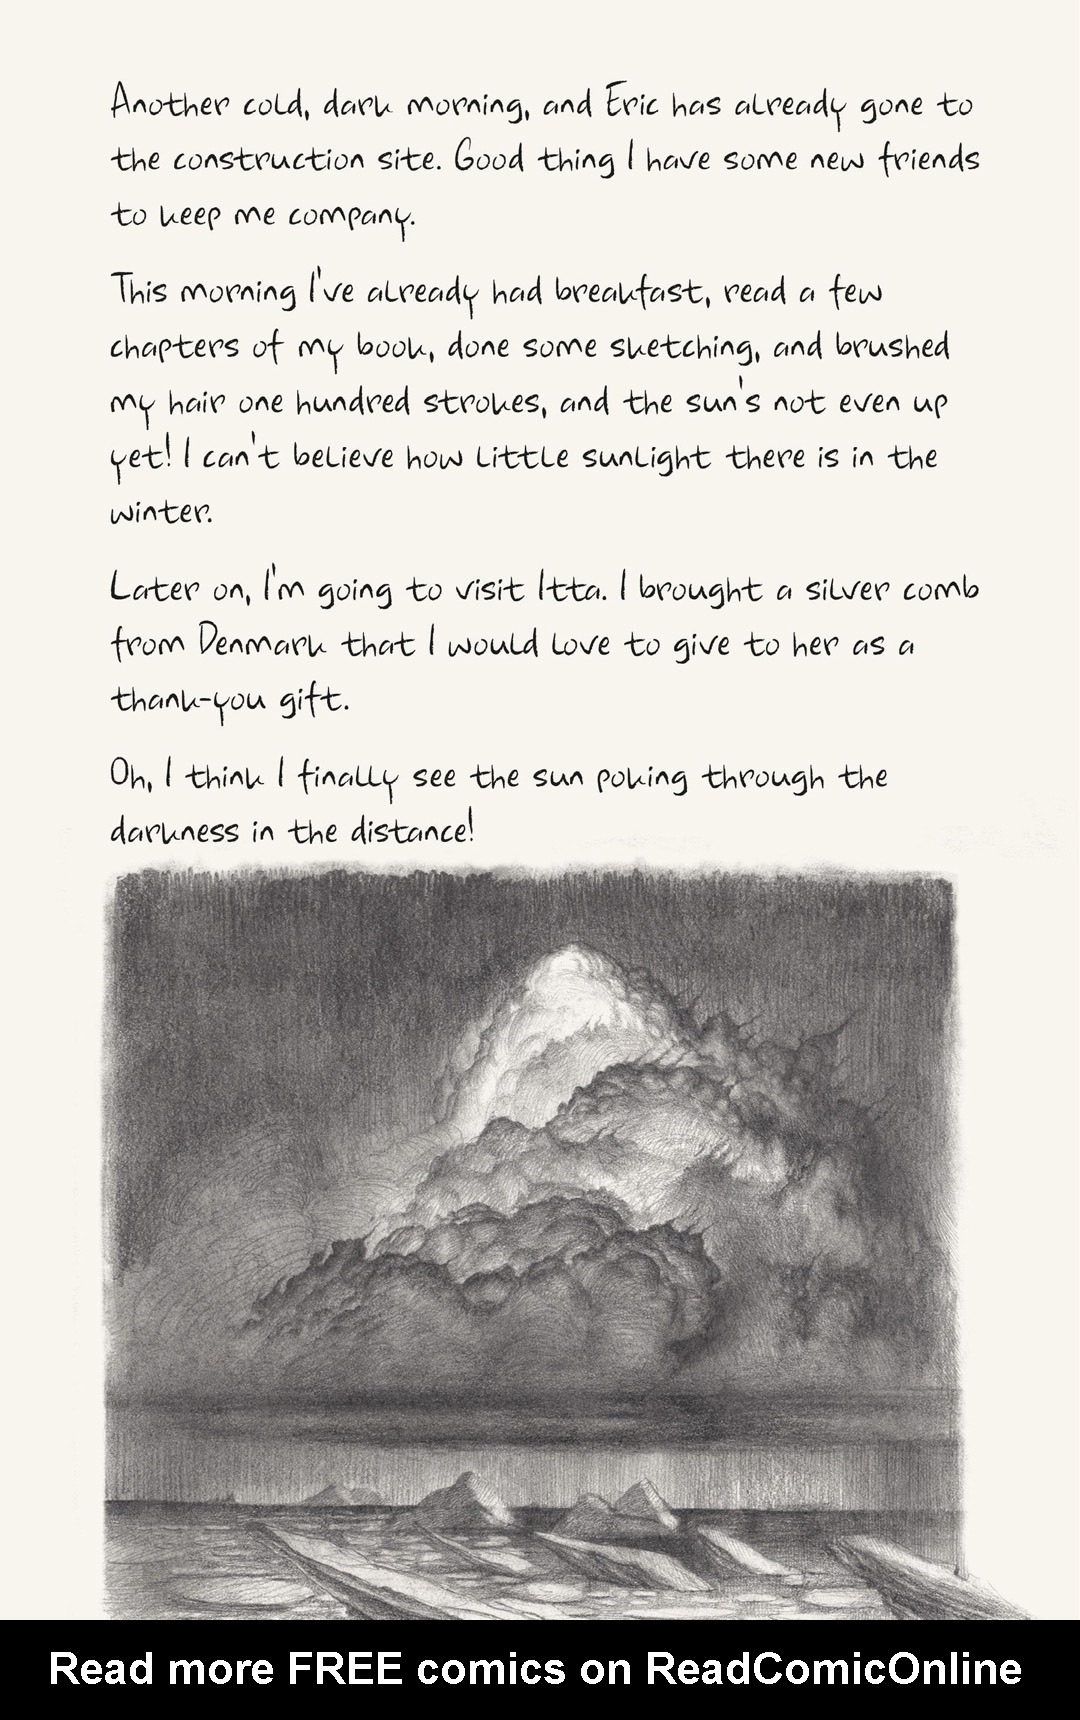 Another cold, dark morning, and Eric has already gone to
the construction site. Good thing I have some new friends
to keep me company.
This morning I've already had breakfast, read a few
chapters of my book, done some sketching, and brushed
my hair one hundred strokes, and the sun's not even up
yet! I can't believe how little sunlight there is in the
winter.
Later on, I'm going to visit Itta. I brought a silver comb
from Denmark that I would love to give to her as a
thank-you gift.
Oh, I think I finally see the sun poking through the
darkness in the distance!
Read more FREE comics on ReadComicOnline